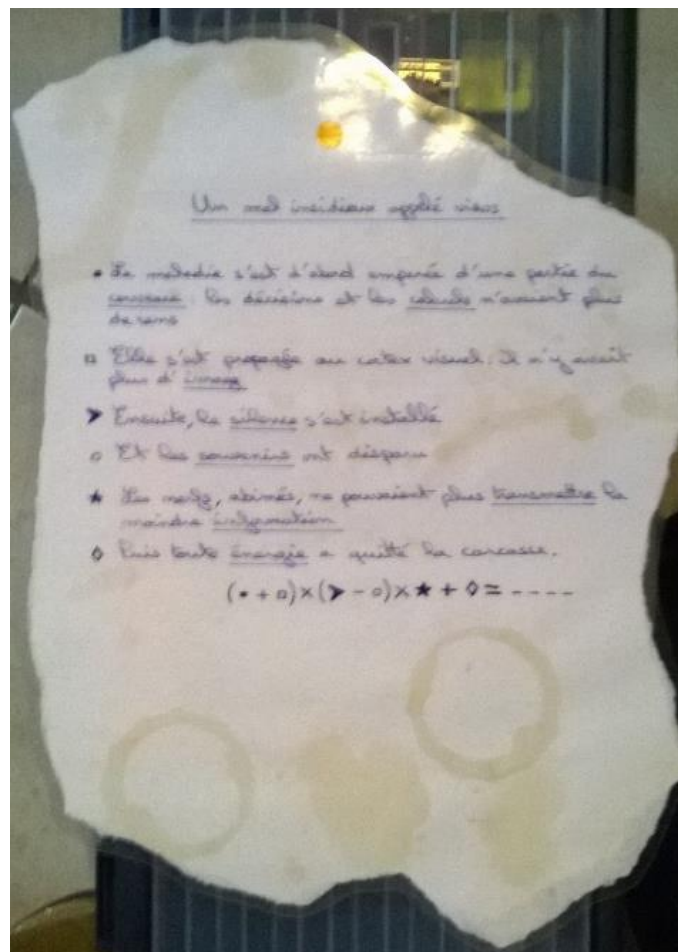 Un mal insidieux appelé virus
• La maladie s'est d'abord emparée d'une partie du
cerveau : les décisions et les calculs n'avaient plus
de sens
□ Elle s'est propagée au cortex visual : il n'y avait
plus d'image
➤ Ensuite, le silence s'est installé
○ Et les souvenirs ont disparu
★ Les nerfs, abimés, ne pouvaient plus transmettre la
moindre information
◊ Puis toute énergie a quitté la carcasse.
(• + □) × (➤ - ○) × ★ + ◊ = - - - -